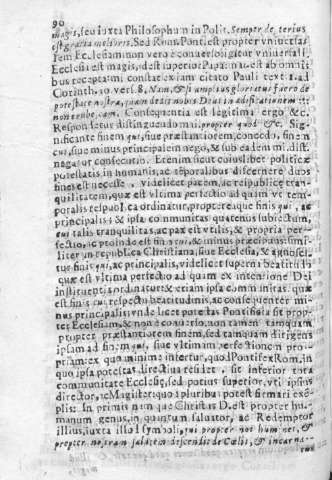 90
magis, seu iuxta Philosophum in Polit. Semper deterius
est gratia melioris. Sed Rom. Pont. est propter vniuersa-
lem Ecclesiam non vero è conuerso: igitur vniuersalis
Ecclesia est magis, id est superior Papa: maior est ab omni-
bus recepta: mi constat ex iam citato Pauli text. 2. ad
Corinth. 10. vers. 8. Nam, & si amplius gloriatus fuero de
potestate nostra, quam dedit nobis Deus in ædificationem
non erubescam. Consequentia est legitima: ergo &c.
Respon letur distinguendo mai. propter quod &c. Sig-
nificante finem qui, siue præstantiorem, concedo, finem
cui, siue minus principalem nego, & sub eadem mi. dist.
negatur consecutio. Etenim sicut cuiuslibet politicæ
potestatis in humanis, ac temporalibus discernere duos
fines est necesse, videlicet pacem, ac reipublicæ tran-
quilitatem, quæ est vltima perfectio ad quam vt tem-
poralis respubl. ea ordinatur, propterea que finis qui, ac
principalis; & ipsa communitas quatenus subiectum,
cui talis tranquilitas, ac pax est vtilis, & propria per-
fectio, ac proinde est finis cui, & minus præcipuus: simi-
liter in republica Christiana, siue Ecclesia, & agnosci-
tur finis qui, ac principalis, videlicet superna beatitudo
quæ est vltima perfectio ad quam ex intentione Dei
instituentis ordinatur: & etiam ipsa communitas, quæ
est finis cui respectu beatitudinis, ac consequenter mi-
nus principalis: vnde licet potestas Pontificia sit prop-
ter Ecclesiam, & non è conuerso, non tamen tamquam
propter præstantiorem finem, sed tamquam dirigens
ipsam ad finem qui, siue vltimam perfectionem pro-
priam: ex quo minime infertur, quod Pontifex Rom. in
quo ipsa potestas directiua residet, sit inferior tota
communitate Ecclesiæ, sed potius superior, vti ipsius
director, ac Magister: quod pluribus potest firmari exē-
plis: In primis nam que Christus D. est propter hu-
manum genus, in quantum saluator, ac Redemptor
illius, iuxta illo symboli, qui propter nos homines, &
propter nostram salutem descendit de Cœlis, & incarna-